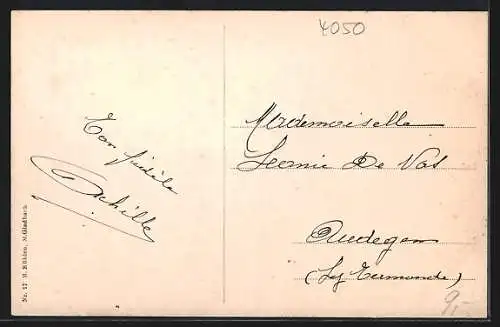 4050
Ton fidèle
Achille
Mademoiselle
Leonie De Vos
Audegem
(Lez Termonde)
Nr. 17 B. Kühlen, M.Gladbach
9,-